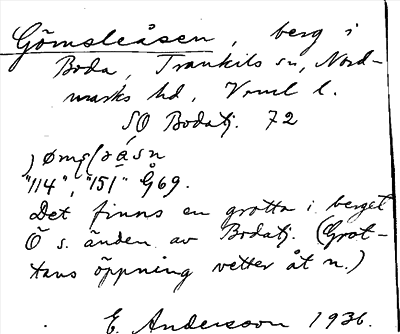 Gömsleåsen, berg i
Boda, Trankils sn, Nord-
marks hd, Vrml l.
SO Bodatj. 72
"114", "151" Å69.
Det finns en grotta i berget
Ö s. änden av Bodatj. (Grot-
tans öppning vetter åt n.)
E. Andersson 1936.